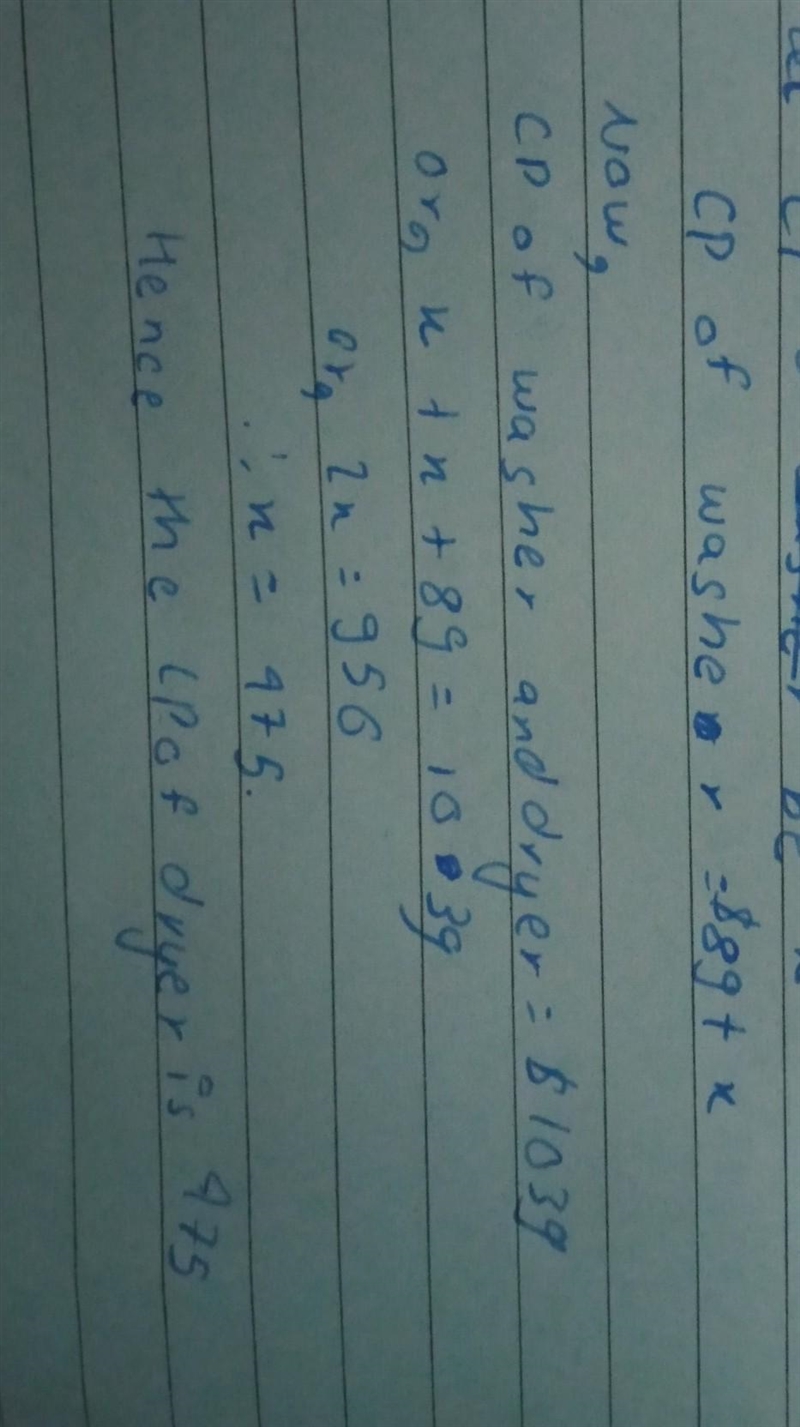 CP of washer = $89 + x
Now,
CP of washer and dryer = $1039
or, x + x + 89 = 1039
or, 2x = 956
∴ x = 475.
Hence the CP of dryer is 475